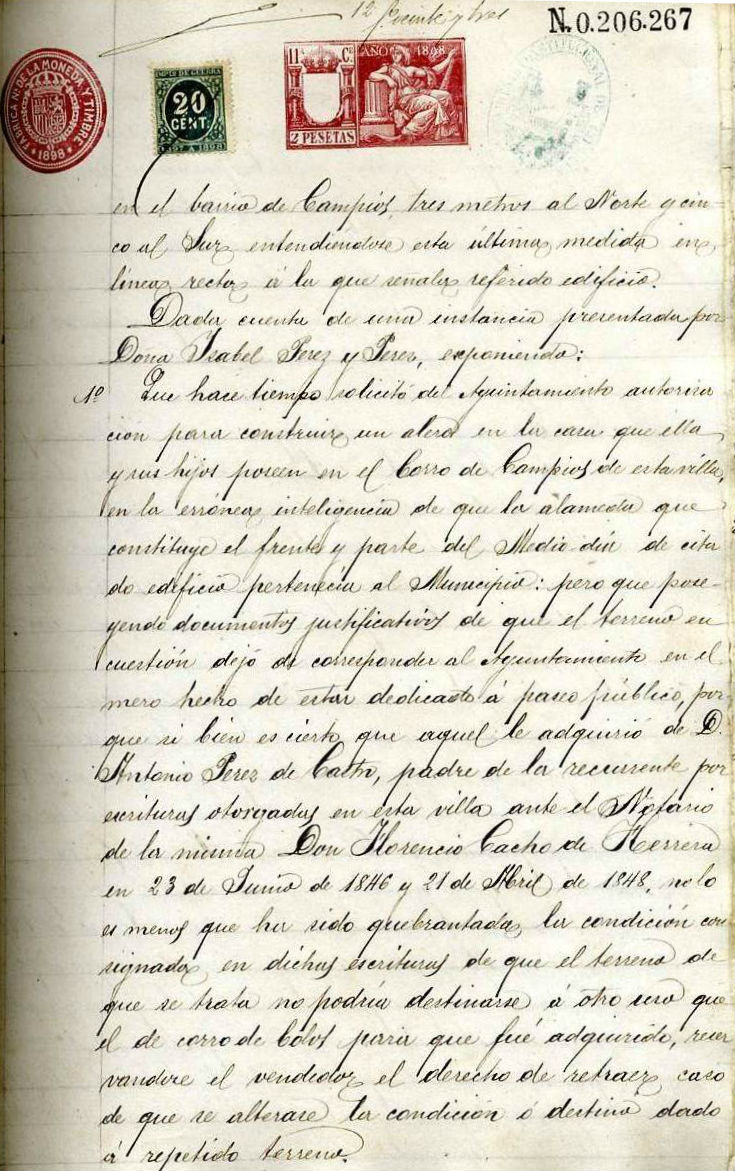 12 Veinte y tres
N. 0.206.267
FABRICA NAL. DE LA MONEDA Y TIMBRE
* 1898 *
IMPTO DE GUERRA
20
CENT.
1897 A 1898
11 Ca
AÑO 1898
2 PESETAS
CONSTITUCIONAL DE
en el barrio de Campios, tres metros al Norte y cin-
co al Sur, entendiendose esta última medida en
línea recta á la que señala referido edificio.
Dada cuenta de una instancia presentada por
Dona Isabel Perez y Perez, exponiendo:
1º Que hace tiempo solicitó del Ayuntamiento autoriza
cion para construir un alero en la casa que ella
y sus hijos poseen en el Corro de Campios de esta villa,
en la errónea inteligencia de que la alameda que
constituye el frente y parte del Medio-dia de cita
do edificio pertenecia al Municipio: pero que pose-
yendo documentos justificativos de que el terreno en
cuestión dejó de corresponder al Ayuntamiento en el
mero hecho de estar dedicado á paseo público, por
que si bien es cierto que aquel le adquirió de D.
Antonio Perez de Castro, padre de la recurrente por
escrituras otorgadas en esta villa ante el Notario
de la misma Don Florencio Cacho de Herrera
en 23 de Junio de 1846 y 21 de Abril de 1848, no lo
es menos que ha sido quebrantada la condición con
signada en dichas escrituras de que el terreno de
que se trata no podría destinarse á otro uso que
el de corro de bolos para que fué adquirido, reser
vandose el vendedor el derecho de retraer, caso
de que se alterase la condición ó destino dado
á repetido terreno.